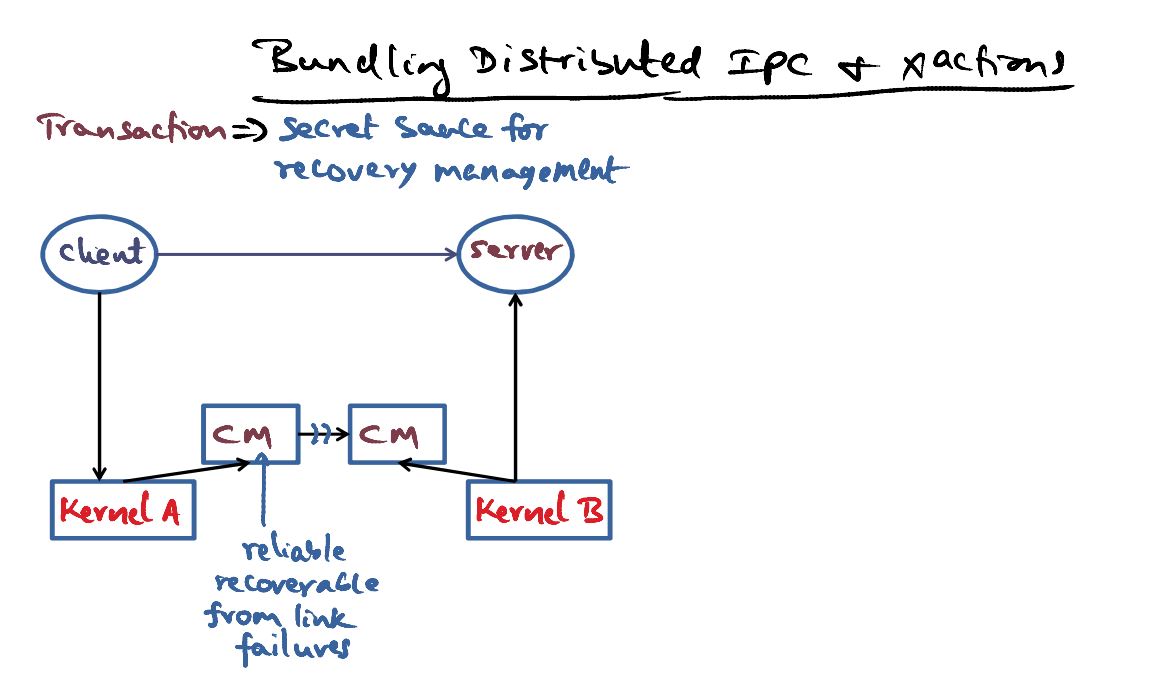 Bundling Distributed IPC & xactions
Transaction => secret sauce for
recovery management
client
server
CM
CM
Kernel A
Kernel B
reliable
recoverable
from link
failures